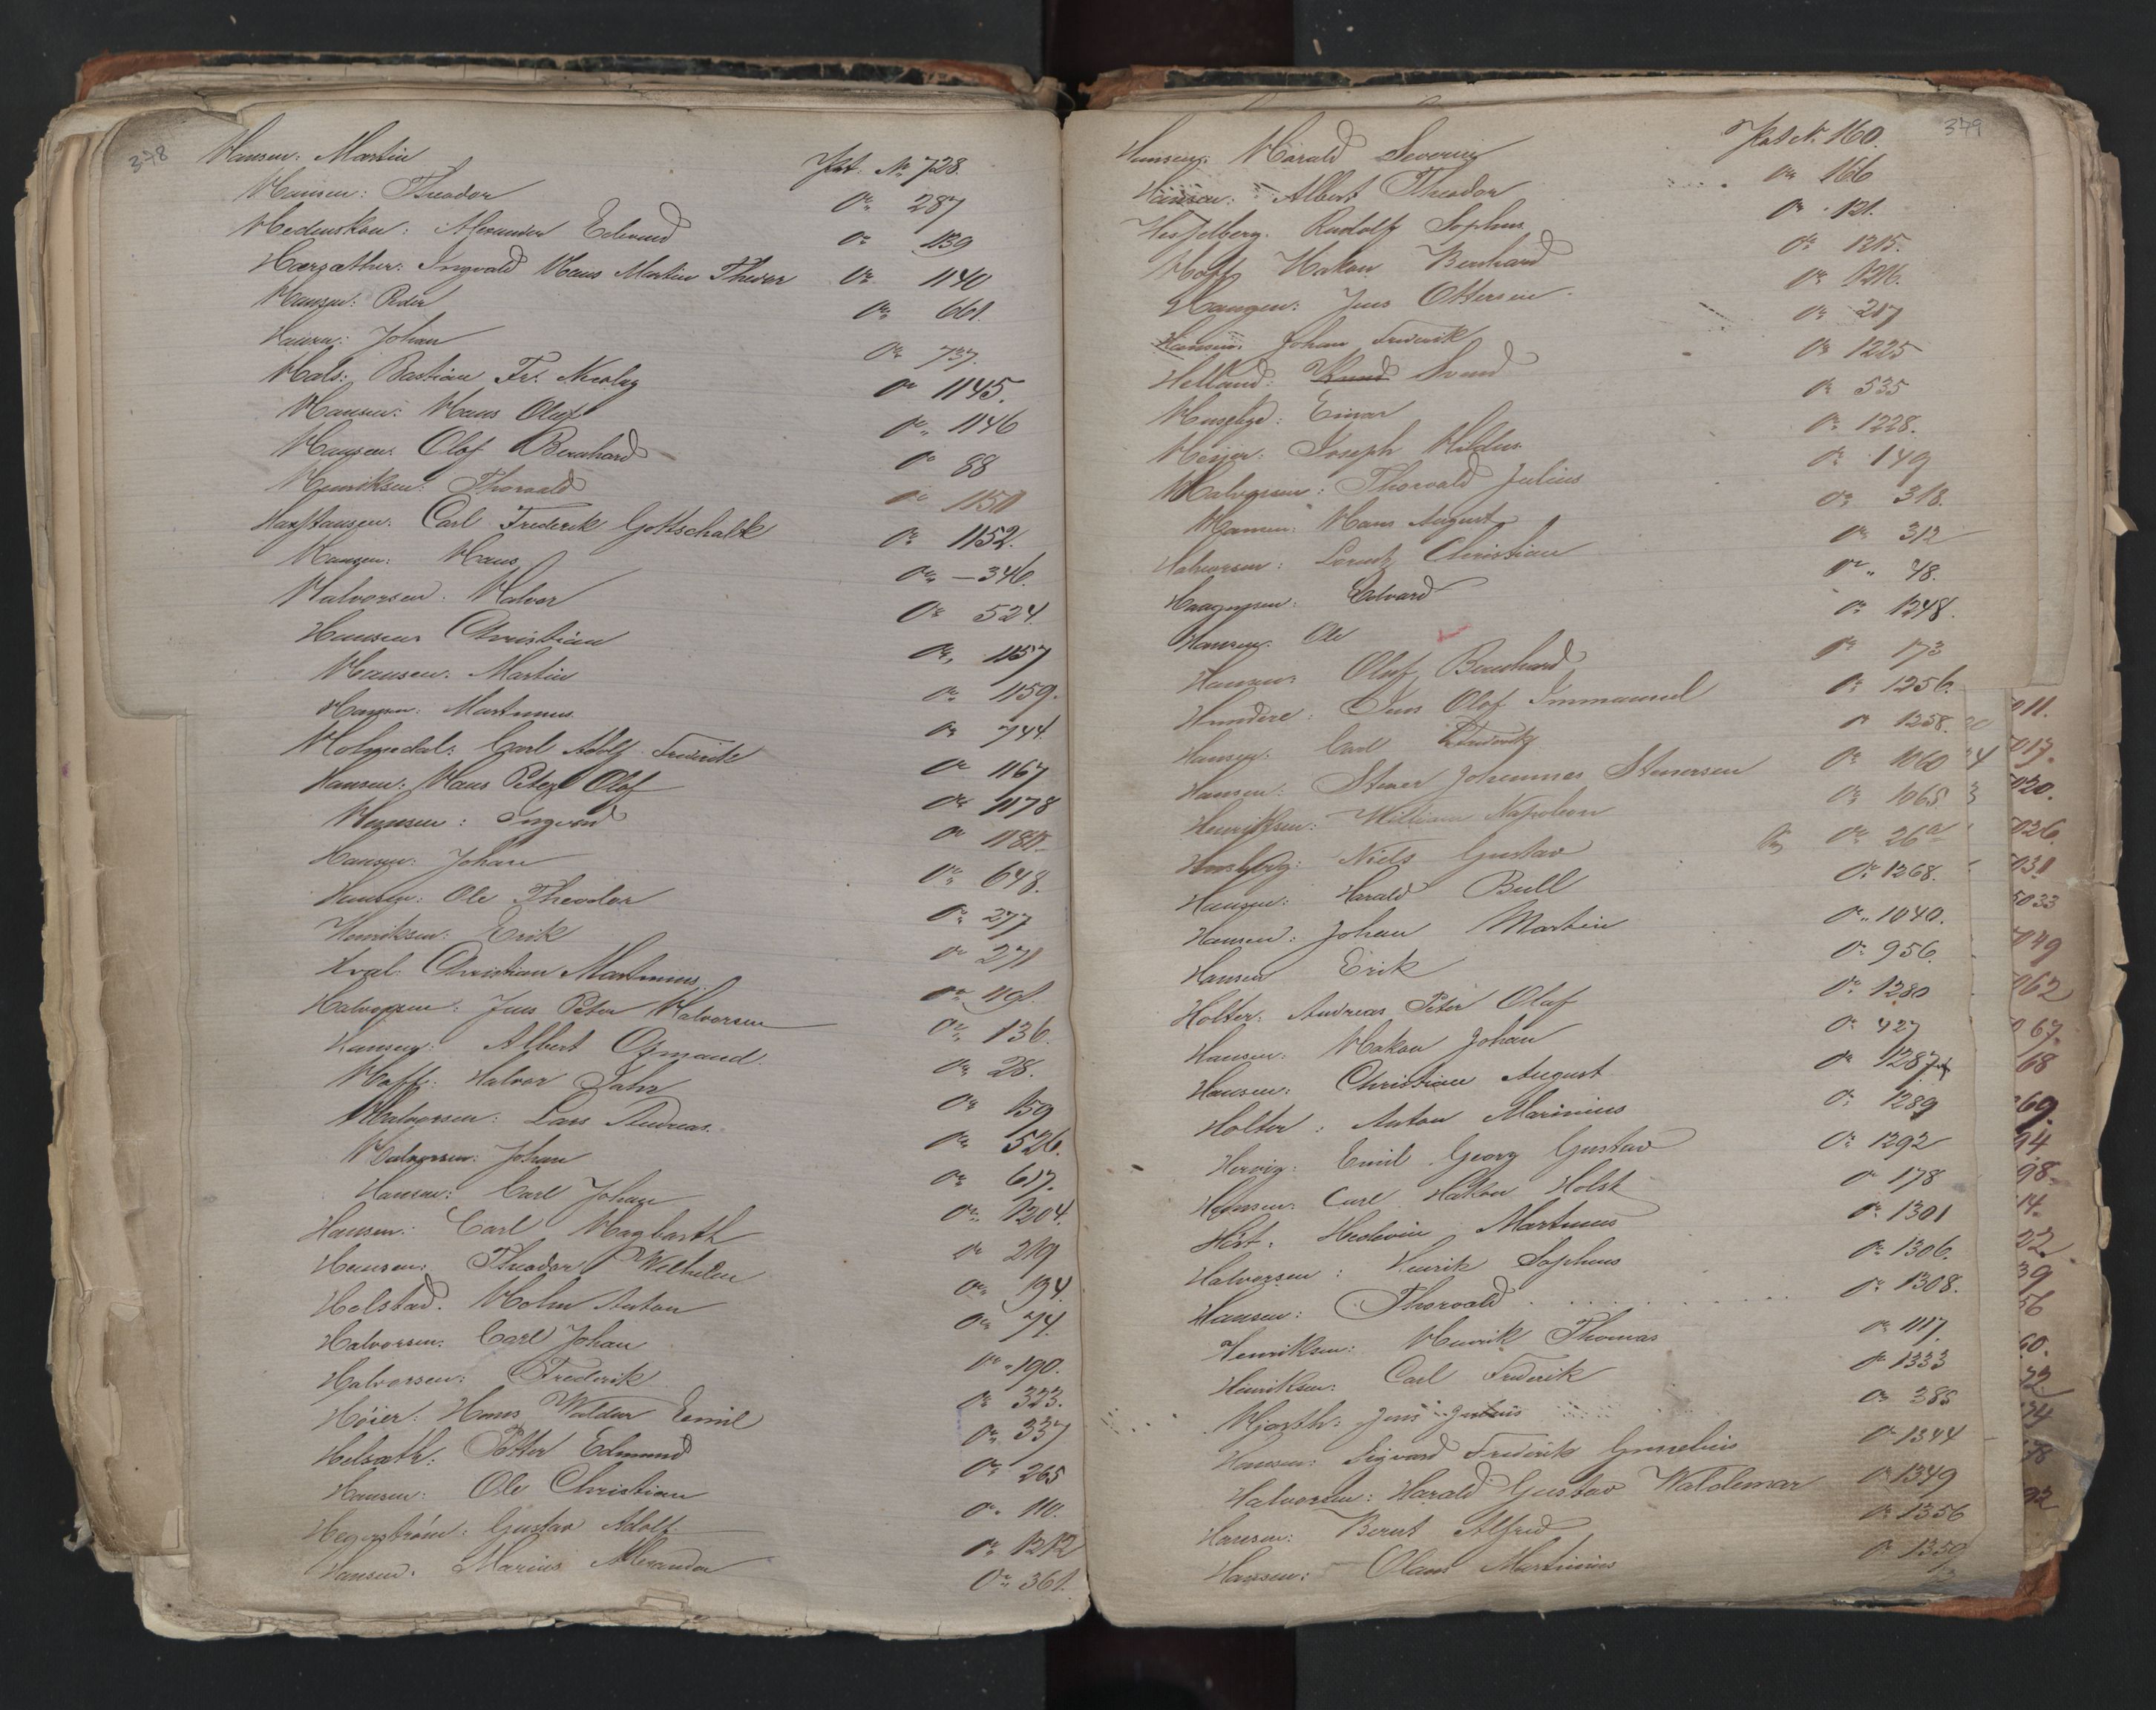 378
Hansen: Martin Pat. No 728.
Hansen: Theodor do 287
Hedenskou: Alexander Edvard do 1139
Ingvald Hans Martin Thever do 1140
Hansen: Peder do 661.
Hansen: Johan do 737.
Hals: Bastian Fr. Nicolay do 1145.
Hansen: Hans Oluf do 1146
Hansen: Olof Bernhard do 88
Henriksen: Thorvald do 1150
Carl Frederik Gottschalk do 1152.
Hansen: Hans do 346.
Halvorsen: Halvor do 524.
Hansen: Christian do 1157
Hansen: Martin do 1159.
Hansen: Martinus do 744.
Holmedal: Carl Adolf Frederik do 1167
Hansen: Hans Peter Olof do 1178
Hansen: Ingvard do
Hansen: Johan do 648.
Hansen: Ole Theodor do 277
Henriksen: Erik do 271
Hval: Christian Martinus do 1191.
Halvorsen: Jens Peter Halvorsen do 136.
Hansen: Albert Osmand. do 28.
Hoff: Halvor do 159
Halvorsen: Lars Andreas. do 526.
Halvorsen: Johan do 617.
Hansen: Carl Johan do 1204.
Hansen: Carl Hagbarth do 219
Hansen: Theodor Wilhelm do 194.
Helstad: Holm Anton do 74.
Halvorsen: Carl Johan do 190.
Halvorsen: Frederik do 323.
Høier: Hans Valdur Emil do 337
Helsæth: Petter Edmund do 265
Hansen: Ole Christian do 110.
Hegerstrøm: Gustav Adolf do 1212
Hansen: Marius Alexander do 361.
379
Hansen: Harald Severin Pat No 160.
Hansen: Albert Theodor do 166
Hesselberg: Rudolf Sophus do 121.
Hoff Hakon Bernhard do 1215.
Haugen: Jens Ottersen do 1216.
Hansen: Johan Frederik do 217
Helland: Svend do 1225
Huseby: Einar do 535
Heyer: Joseph Hildur do 1228.
Halvorsen: Thorvald Julius do 149
Hansen: Hans August do 318.
Halvorsen: Lorentz Christian do 312
Haagensen: Edvard do 48.
Hansen: Ole do 1248.
Hansen: Oluf Bernhard do 173
Hundere: Jens Olof Immanuel do 1256.
Hansen: Carl Frederik do 1258.
Hansen: Stener Johannes Stenersen do 1060
Henriksen: William Napoleon do 1065
Niels Gustav do 26a
Hansen: Harald Bull do 1268.
Hansen: Johan Martin do 1040.
Hansen Erik do 956.
Holter: Andreas Peter Olaf do 1280
Hansen: Hakon Johan do 427
Hansen: Christian August do 1287
Holter: Anton Marinius do 1289
Hervig: Emil Georg Gustav do 1292
Hansen: Carl Hakon Holst do 178
Høst: Hedevin Martinus do 1301
Halvorsen: Henrik Sophus do 1306.
Hansen: Thorvald do 1308.
Henriksen: Henrik Thomas do 1117.
Henriksen: Carl Frederik do 1333
Hjorth: Jens Julius do 385
Hansen: Sigvard Frederik do 1344
Halvorsen: Harald Gustav Waldemar do 1349
Hansen: Bernt Alfred do 1356
Hansen: Olaus Martinius do 1359